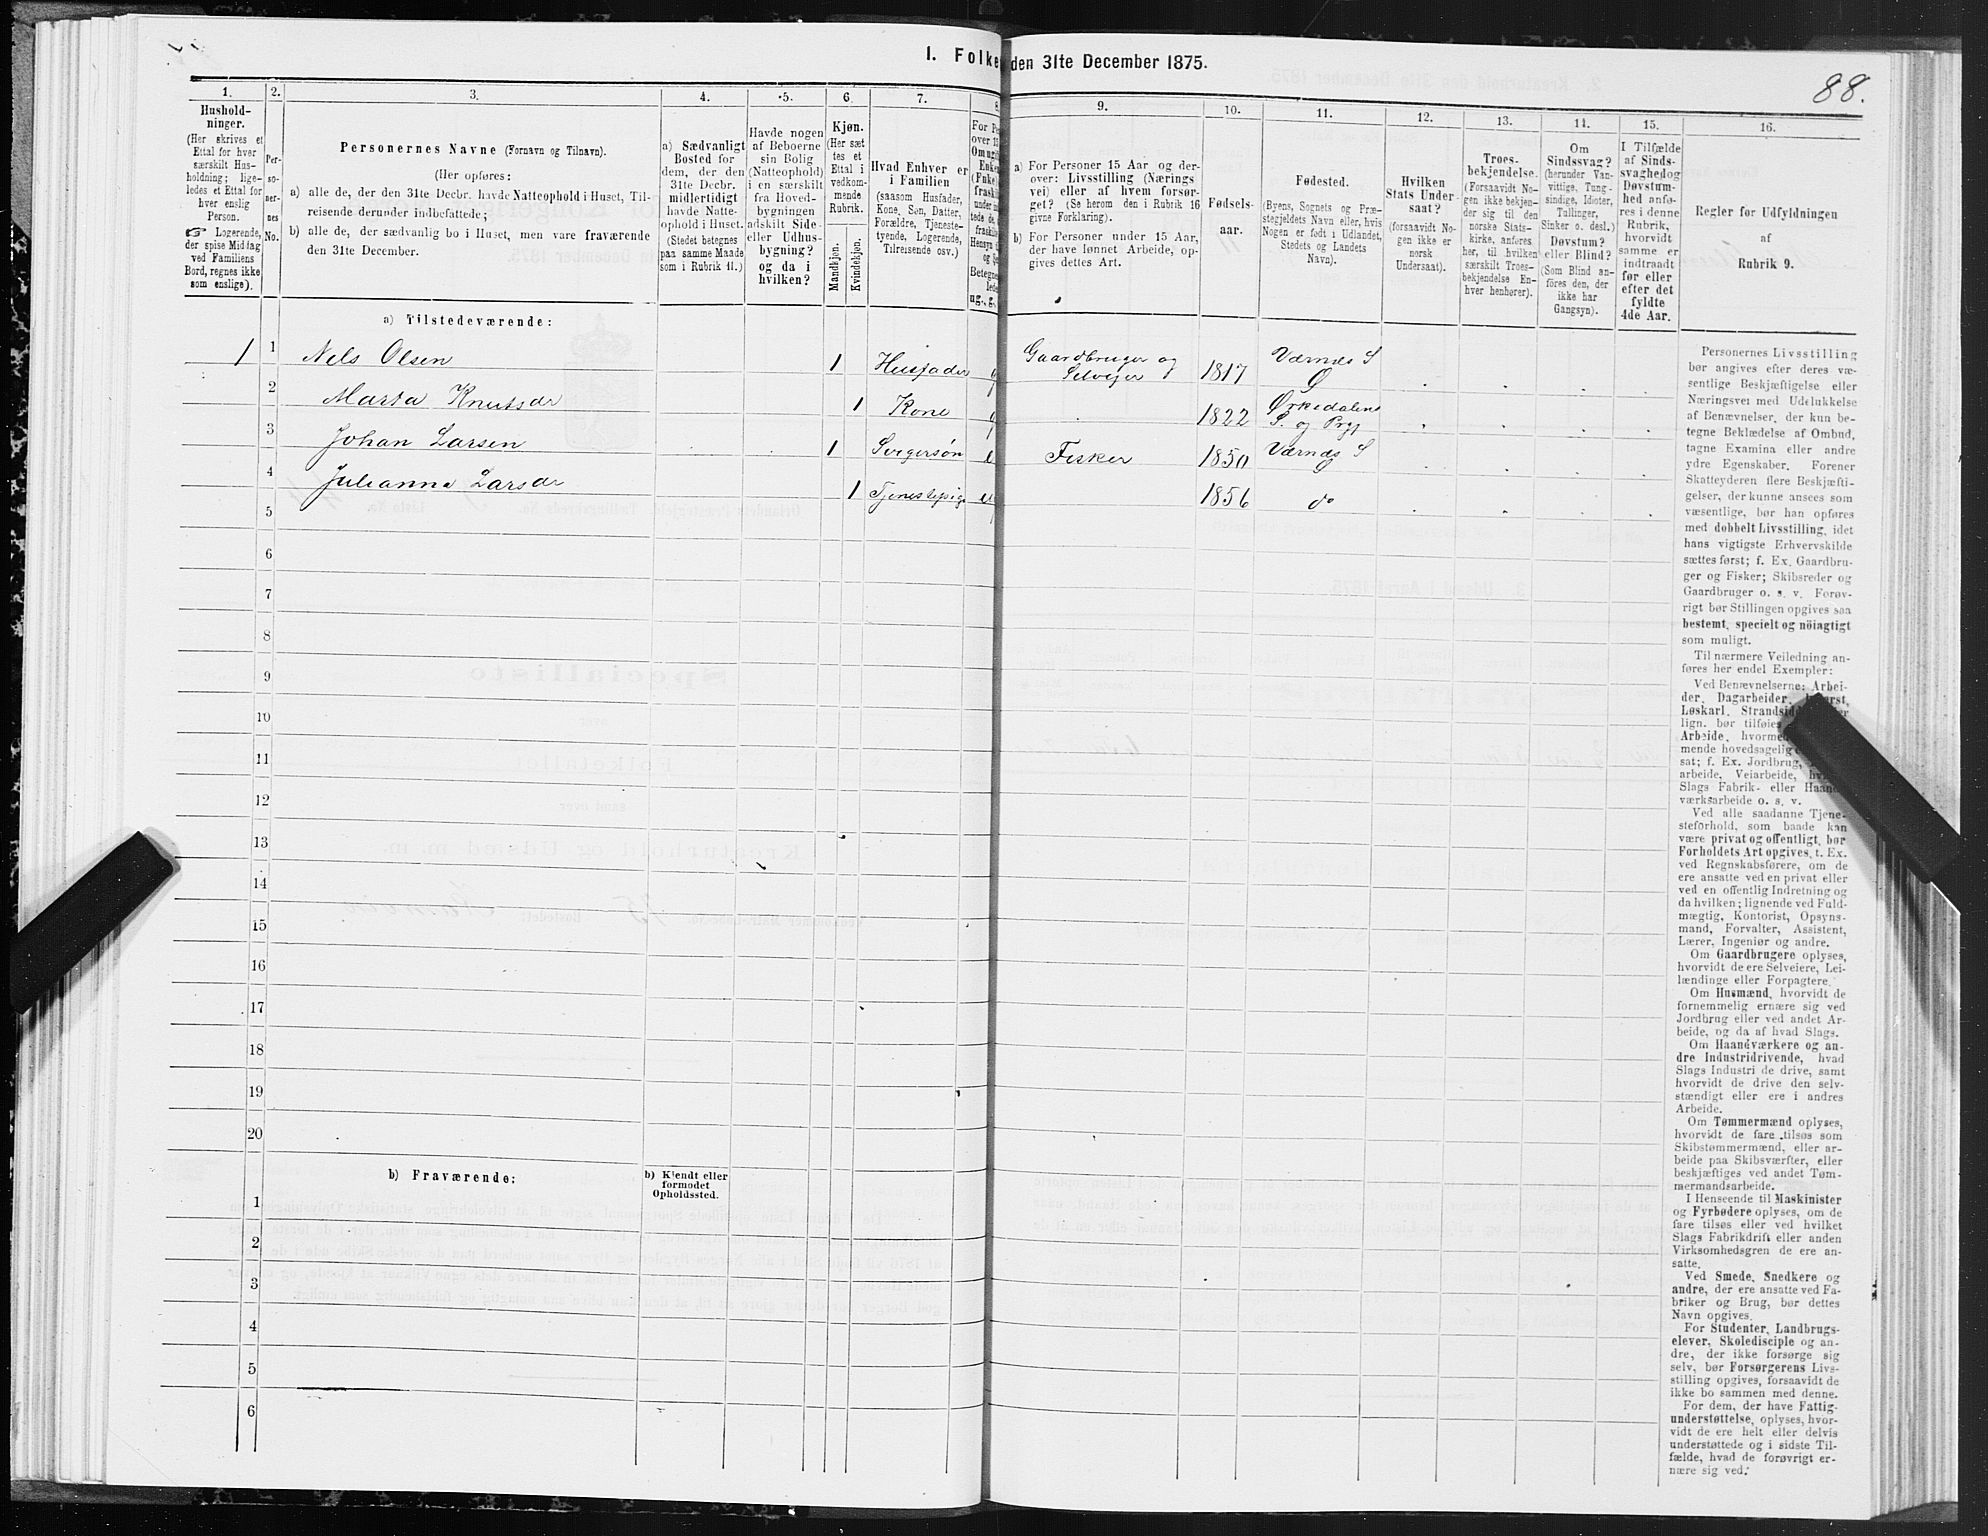 I. Folke den 31te December 1875.
88.
1. 2. 3. 4. 5. 6. 7. 8. 9. 10. 11. 12. 13. 14. 15. 16.
Hushold-
ninger.
(Her skrives et
Ettal for hver
særskilt Hus-
holdning; lige-
ledes et Ettal for
hver enslig
Person.
☞ Logerende,
der spise Middag
ved Familiens
Bord, regnes ikke
som enslige).
Per-
so-
ner-
nes
No.
Personernes Navne (Fornavn og Tilnavn).
(Her opføres:
a) alle de, der den 31te Decbr. havde Natteophold i Huset, Til-
reisende derunder indbefattede;
b) alle de, der sædvanlig bo i Huset, men vare fraværende
den 31te December.
a) Sædvanligt
Bosted for
dem, der den
31te Decbr.
midlertidigt
havde Natte-
ophold i Huset.
(Stedet betegnes
paa samme Maade
som i Rubrik 11.)
Havde nogen
af Beboerne
sin Bolig
(Natteophold)
i en særskilt
fra Hoved-
bygningen
adskilt Side-
eller Udhus-
bygning?
og da i
hvilken?
Kjøn.
(Her sæt
tes et
Ettal i
vedkom-
mende
Rubrik.
Mandkjøn.
Kvindekjøn.
Hvad Enhver er
i Familien
(saasom Husfader,
Kone, Søn, Datter,
Forældre, Tjeneste-
tyende, Logerende,
Tilreisende osv.)
a) For Personer 15 Aar og der-
over: Livsstilling (Nærings
vei) eller af hvem forsør-
get? (Se herom den i Rubrik 16
givne Forklaring).
b) For Personer under 15 Aar,
der have lønnet Arbeide, op-
gives dettes Art.
Fødsels-
aar.
Fødested.
(Byens, Sognets og Præ-
stegjeldets Navn eller, hvis
Nogen er født i Udlandet,
Stedets og Landets
Navn).
Hvilken
Stats Under-
saat?
(forsaavidt No-
gen ikke er
norsk
Undersaat).
Troes-
bekjendelse.
(Forsaavidt No-
gen ikke bekjen-
der sig til den
norske Stats-
kirke, anføres
her, til hvilken
særskilt Troes-
bekjendelse En-
hver henhører).
Om
Sindssvag?
(herunder Van-
vittige, Tung-
sindige, Idioter,
Tullinger,
Sinker o. desl.)
Døvstum?
eller Blind?
(Som Blind an-
føres den, der
ikke har
Gangsyn).
I Tilfælde
af Sinds-
svaghed og
Døvstum-
hed anfø-
res i denne
Rubrik,
hvorvidt
samme er
indtraadt
før eller
efter det
fyldte
4de Aar.
Regler for Udfyldningen
af
Rubrik 9.
a) Tilstedeværende:
1 1 Nels Olsen 1 Husfader Gaardbruger og Selveier 1817 Værnes S
2 Marta Knutsdr 1 Kone 1822 Ørkedalens S. og Prgj
3 Johan Larsen 1 Fisker 1850 Værnes S
4 Julianna Larsdr 1 Tjenestepige 1856 do
5
6
7
8
9
10
11
12
13
14
15
16
17
18
19
20
b) Fraværende:
b) Kjendt eller
formodet
Opholdssted.
1
2
3
4
5
6
Personernes Livsstilling
bør angives efter deres væ-
sentlige Beskjæftigelse eller
Næringsvei med Udelukkelse
af Benævnelser, der kun be-
tegne Beklædelse af Ombud,
tagne Examina eller andre
ydre Egenskaber. Forener
Skatteyderen flere Beskjæfti-
gelser, der kunne ansees som
væsentlige, bør han opføres
med dobbelt Livsstilling, idet
hans vigtigste Erhvervskilde
sættes først; f. Ex. Gaardbru-
ger og Fisker; Skibsreder og
Gaardbruger o. s. v. Forøv-
rigt bør Stillingen opgives saa
bestemt, specielt og nöiagtigt
som muligt.
Til nærmere Veiledning an-
føres her endel Exempler:
Ved Benævnelserne: Arbei-
der, Dagarbeider,
Løskarl, Strandsid
lign. bør tilføies
Arbeide, hvorme
mende hovedsagelig
sat; f. Ex. Jordbrug,
arbeide, Veiarbeide,
Slags Fabrik- eller Haand-
værksarbeide o. s. v.
Ved alle saadanne Tjene-
steforhold, som baade kan
være privat og offentligt, bør
Forholdets Art opgives, t. Ex.
ved Regnskabsførere, om de
ere ansatte ved en privat eller
ved en offentlig Indretning og
da hvilken; lignende ved Fuld-
mægtig, Kontorist, Opsyns-
mand, Forvalter, Assistent,
Lærer, Ingeniør og andre.
Om Gaardbrugere oplyses,
hvorvidt de ere Selveiere, Lei-
lændinge eller Forpagtere.
Om Husmænd, hvorvidt de
fornemmelig ernære sig ved
Jordbrug eller ved andet Ar-
beide, og da af hvad Slags.
Om Haandværkere og an-
dre Industridrivende, hvad
Slags Industri de drive, samt
hvorvidt de drive den selv-
stændigt eller ere i andres
Arbeide.
Om Tømmermænd oplyses,
hvorvidt de fare tilsøs som
Skibstømmermænd, eller ar-
beide paa Skibsværfter, eller
beskjæftiges ved andet Tøm-
mermandsarbeide.
I Henseende til Maskinister
og Fyrbødere oplyses, om de
fare tilsøs eller ved hvilket
Slags Fabrikdrift eller anden
Virksomhedsgren de ere an-
satte.
Ved Smede, Snedkere og
andre, der ere ansatte ved Fa-
briker og Brug, bør dettes
Navn opgives.
For Studenter, Landbrugs-
elever, Skoledisciple og an-
dre, der ikke forsørge sig
selv, bør Forsørgerens Livs-
stilling opgives, forsaavidt de
ikke bo sammen med denne.
For dem, der have Fattig-
understøttelse, oplyses, hvor-
vidt de ere helt eller delvis
understøttede og i sidste Til-
fælde, hvad de forøvrigt er-
nære sig ved.